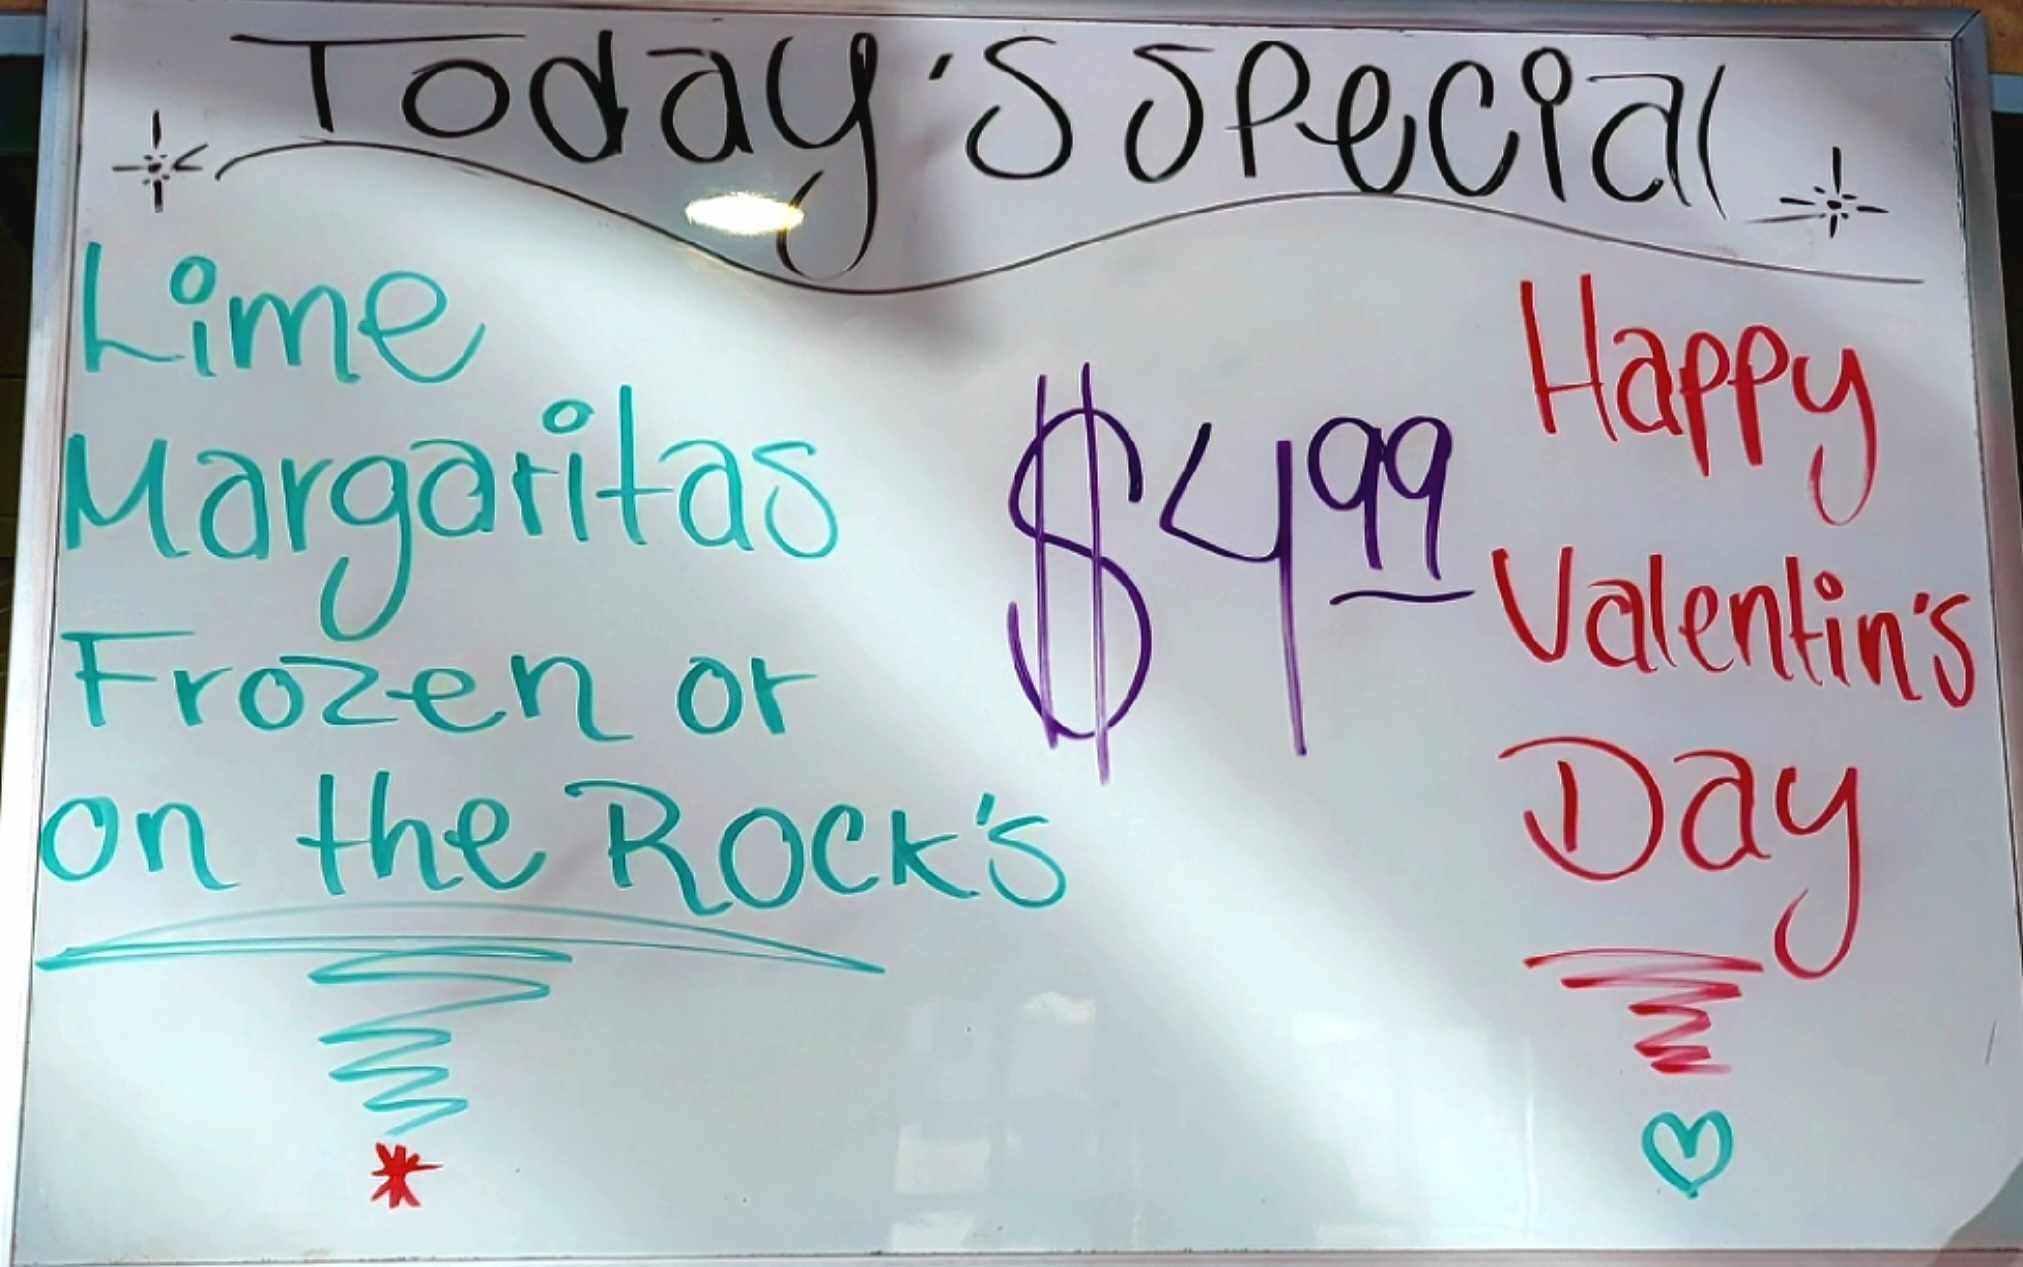 Today's Special
Lime
Margaritas
Frozen or
on the Rock's
$4.99
Happy
Valentin's
Day